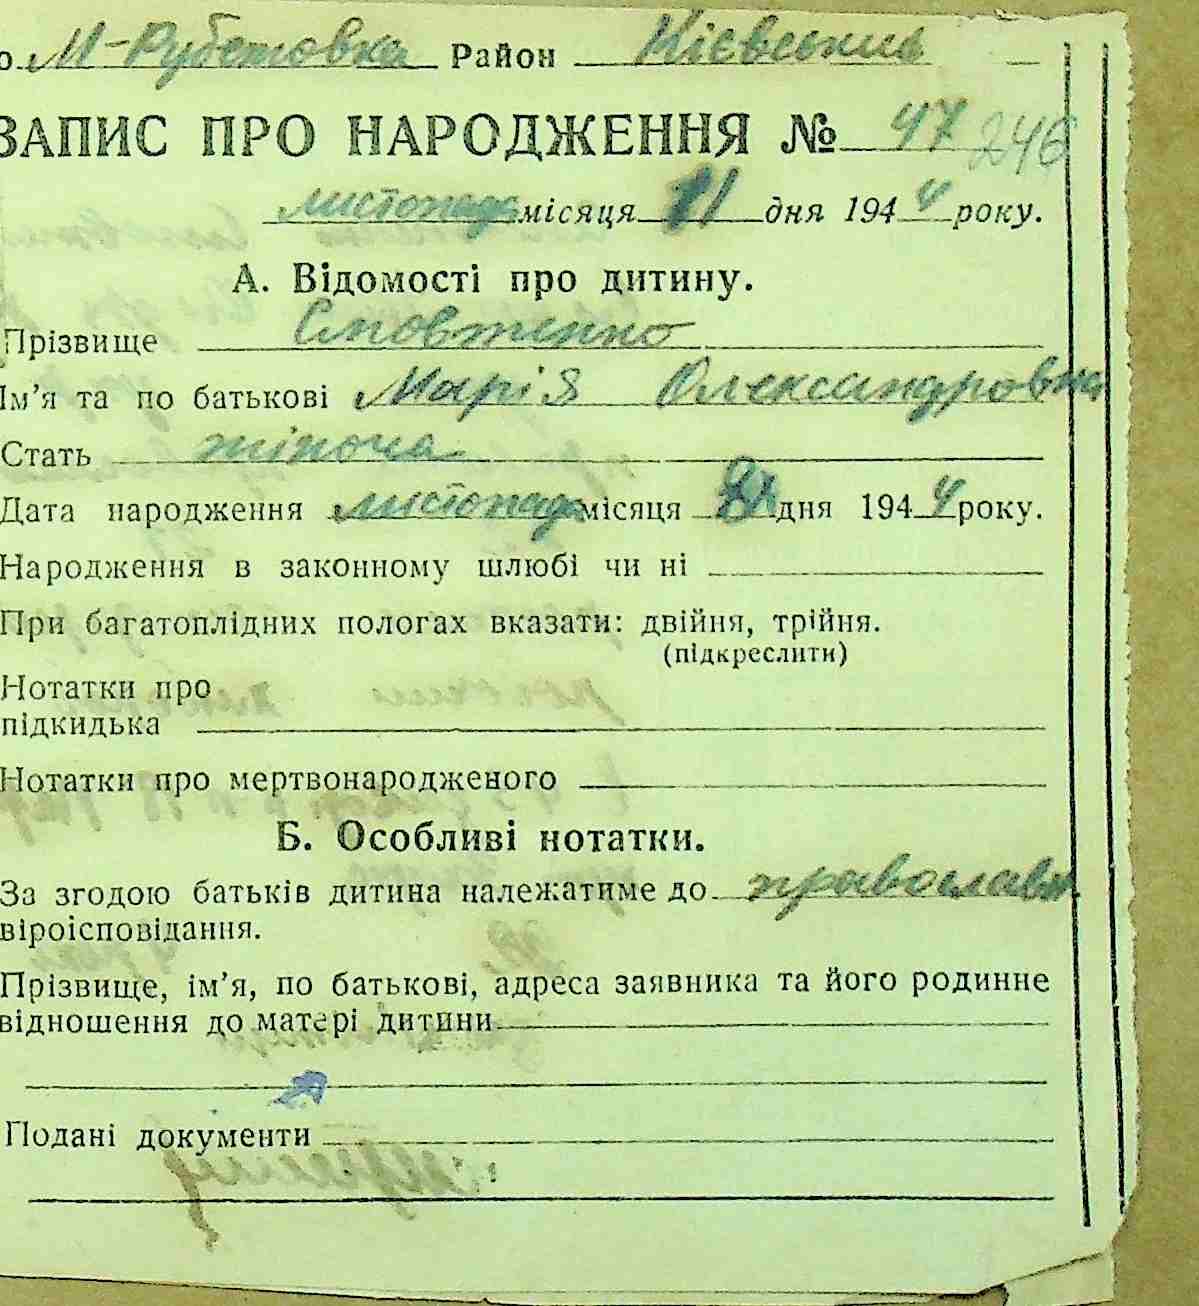 о М-Рубетовка Район Кієвський
ЗАПИС ПРО НАРОДЖЕННЯ № 47 246
листопада місяця 11 дня 1944 року.
А. Відомості про дитину.
Прізвище Смовженко
Ім’я та по батькові Марія Олександровна
Стать жіноча
Дата народження листопада місяця дня 1944 року.
Народження в законному шлюбі чи ні
При багатоплідних пологах вказати: двійня, трійня.
(підкреслити)
Нотатки про
підкидька
Нотатки про мертвонародженого
Б. Особливі нотатки.
За згодою батьків дитина належатиме до православн
віроісповідання.
Прізвище, ім’я, по батькові, адреса заявника та його родинне
відношення до матері дитини
Подані документи